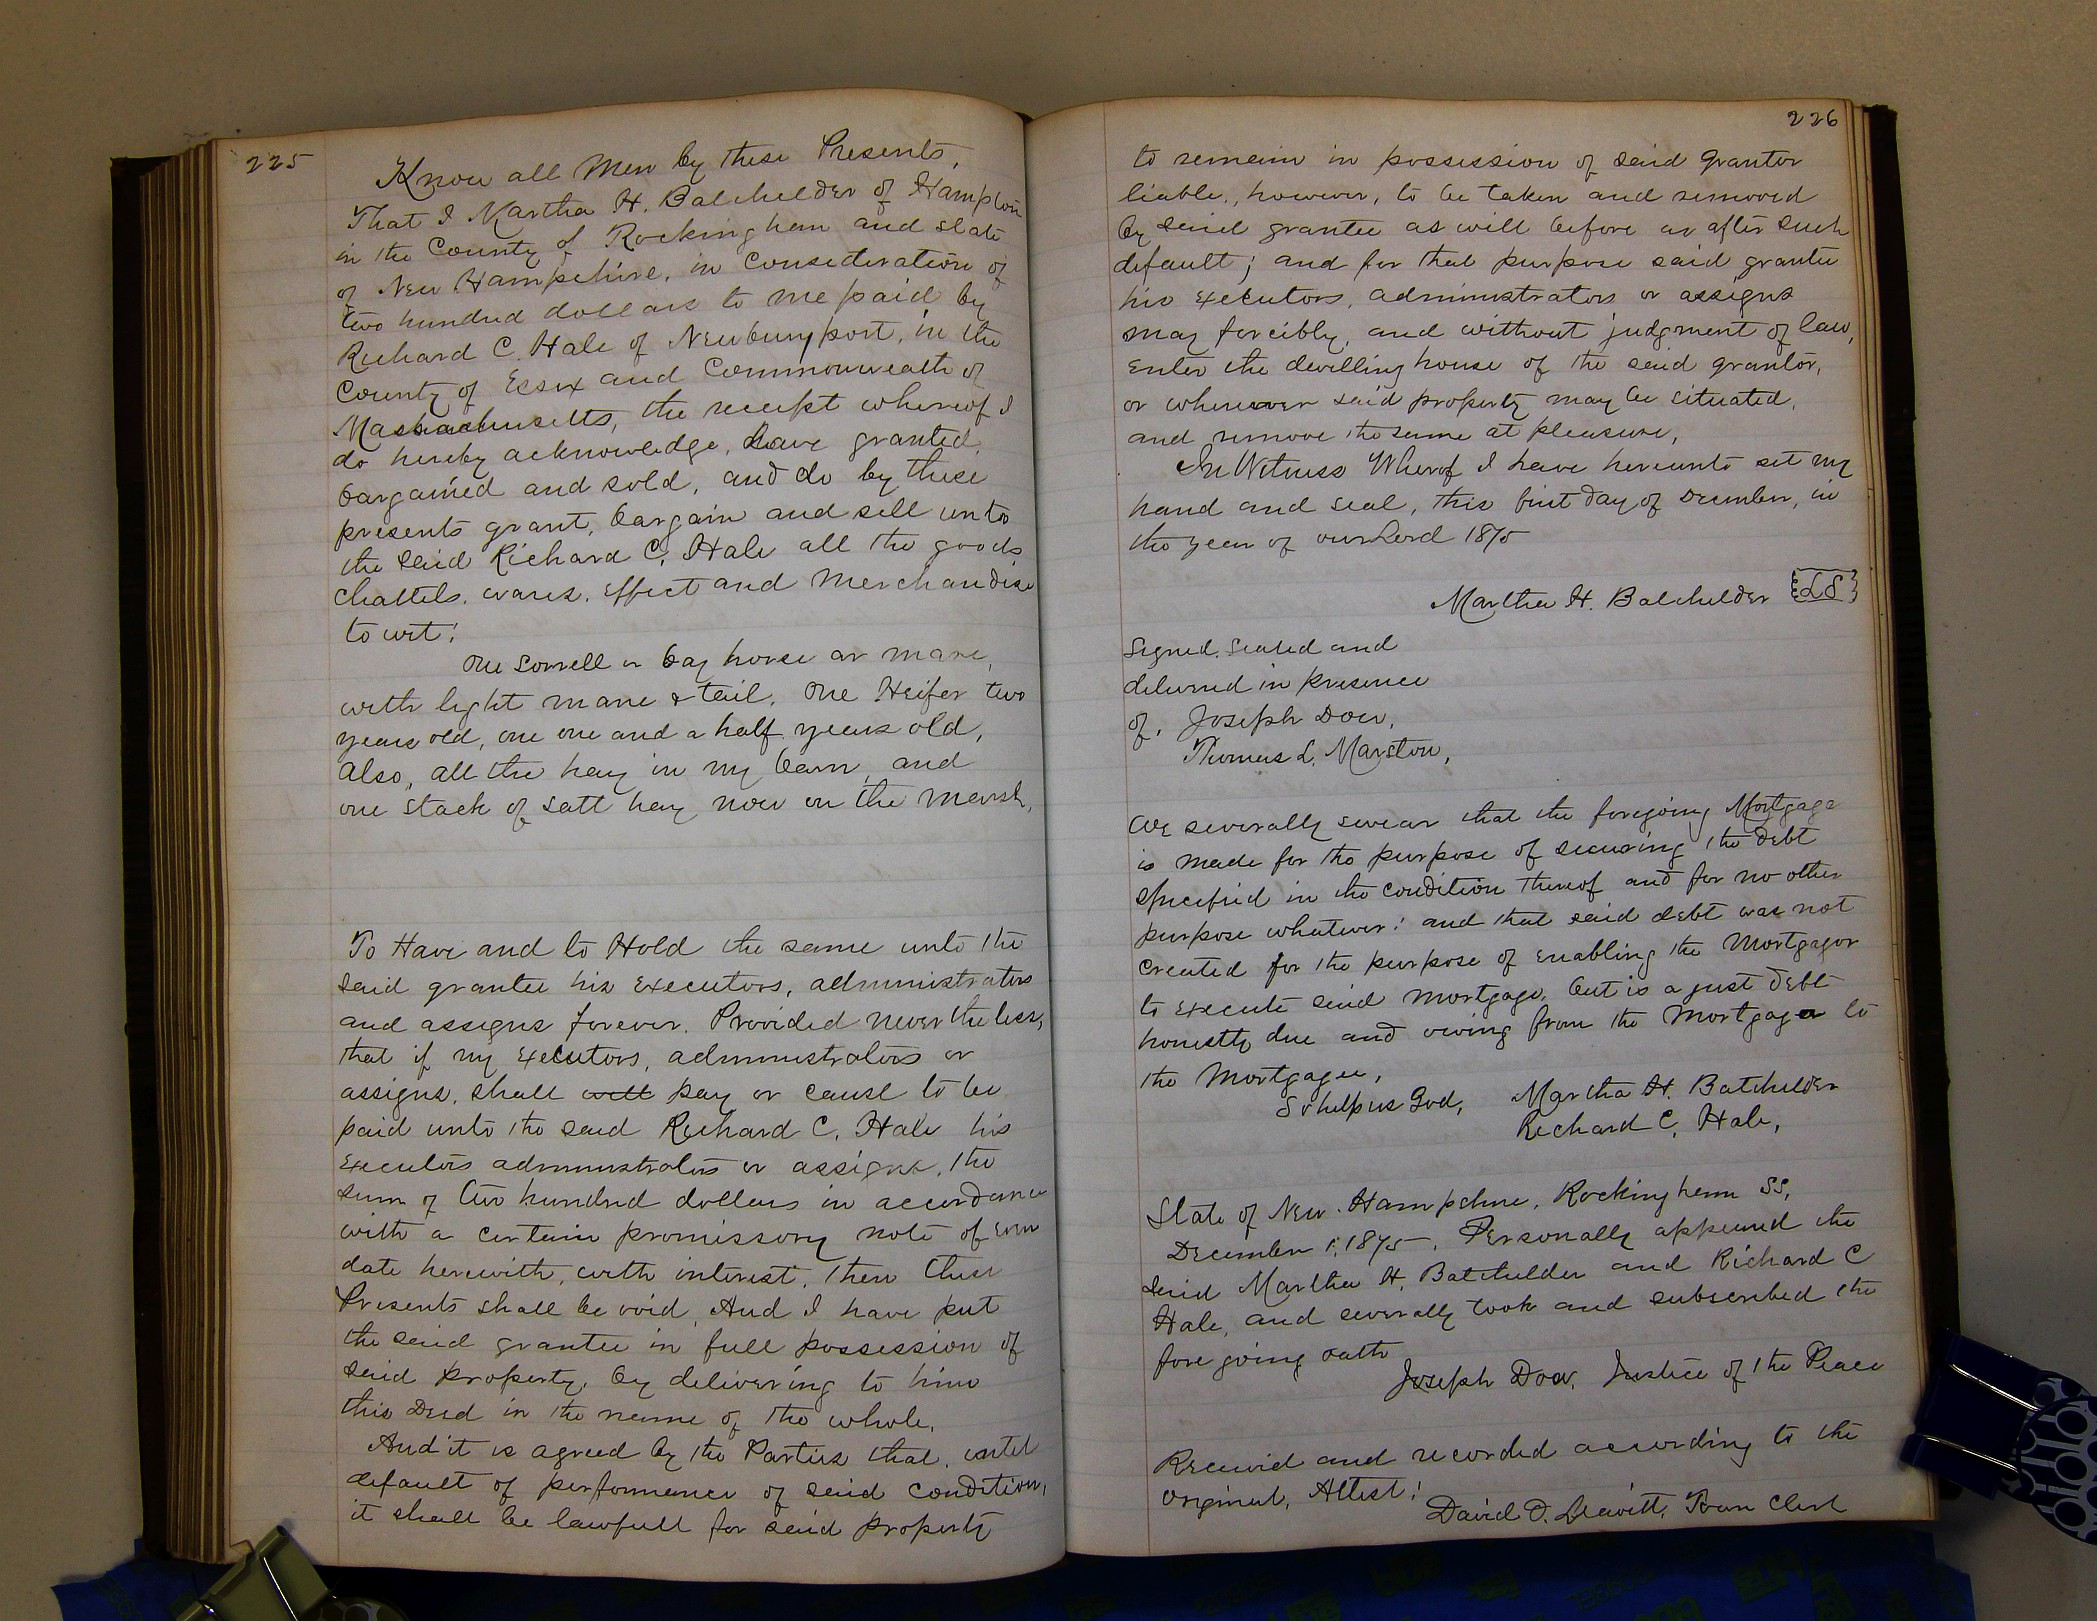 225
Know all Men by these Presents,
That I Martha H. Batchelder of Hampton
in the County of Rockingham and state
of New Hampshire, in consideration of
two hundred dollars to me paid by
Richard C. Hale of Newburyport, in the
County of Essex and Commonwealth of
Massachusetts, the receipt whereof I
do hereby acknowledge, have granted,
bargained and sold, and do by these
presents grant, bargain and sell unto
the said Richard C. Hale all the goods
Chattels, wares, effect and Merchandise
to wit:
One sorrell or bay horse or mare,
with light mane & tail. One Heifer two
years old, one one and a half years old,
also, all the hay in my barn, and
one stack of salt hay now on the marsh,
To Have and to Hold the same unto the
said grantee his executors, administrators
and assigns forever. Provided nevertheless,
that if my executors, administrators or
assigns, shall will pay or cause to be
paid unto the said Richard C. Hale his
executors administrators or assigns, the
sum of two hundred dollars in accordance
with a certain promissory note of even
date herewith, with interest, then these
Presents shall be void, And I have put
the said grantee in full possession of
said property, by delivering to him
this Deed in the name of the whole.
And it is agreed by the Parties that, until
default of performance of said condition,
it shall be lawfull for said property
226
to remain in possession of said grantor
liable, however, to be taken and removed
by said grantee as well before as after such
default; and for that purpose said grantee
his executors, administrators or assigns
may forcibly, and without judgment of law,
enter the dwelling house of the said grantor,
or wherever said property may be situated,
and remove the same at pleasure,
In Witness Wherof I have hereunto set my
hand and seal, this first day of December, in
the year of our Lord 1875
Martha H. Batchelder {LS}
Signed, sealed and
delivered in presence
of, Joseph Dow,
Thomas L. Marston,
We severally swear that the foregoing Mortgage
is made for the purpose of securing the debt
specified in the condition thereof and for no other
purpose whatever: and that said debt was not
created for the purpose of enabling the Mortgagor
to execute said mortgage, but is a just debt
honestly due and owing from the Mortgagor to
the Mortgagee,
So help us God, Martha H. Batchelder
Richard C. Hale,
State of New Hampshire, Rockingham SS,
December 1, 1875, Personally appeared the
said Martha H. Batchelder and Richard C
Hale, and severally took and subscribed the
foregoing oath
Joseph Dow, Justice of the Peace
Received and recorded according to the
original, Attest:
David O. Leavitt, Town Clerk